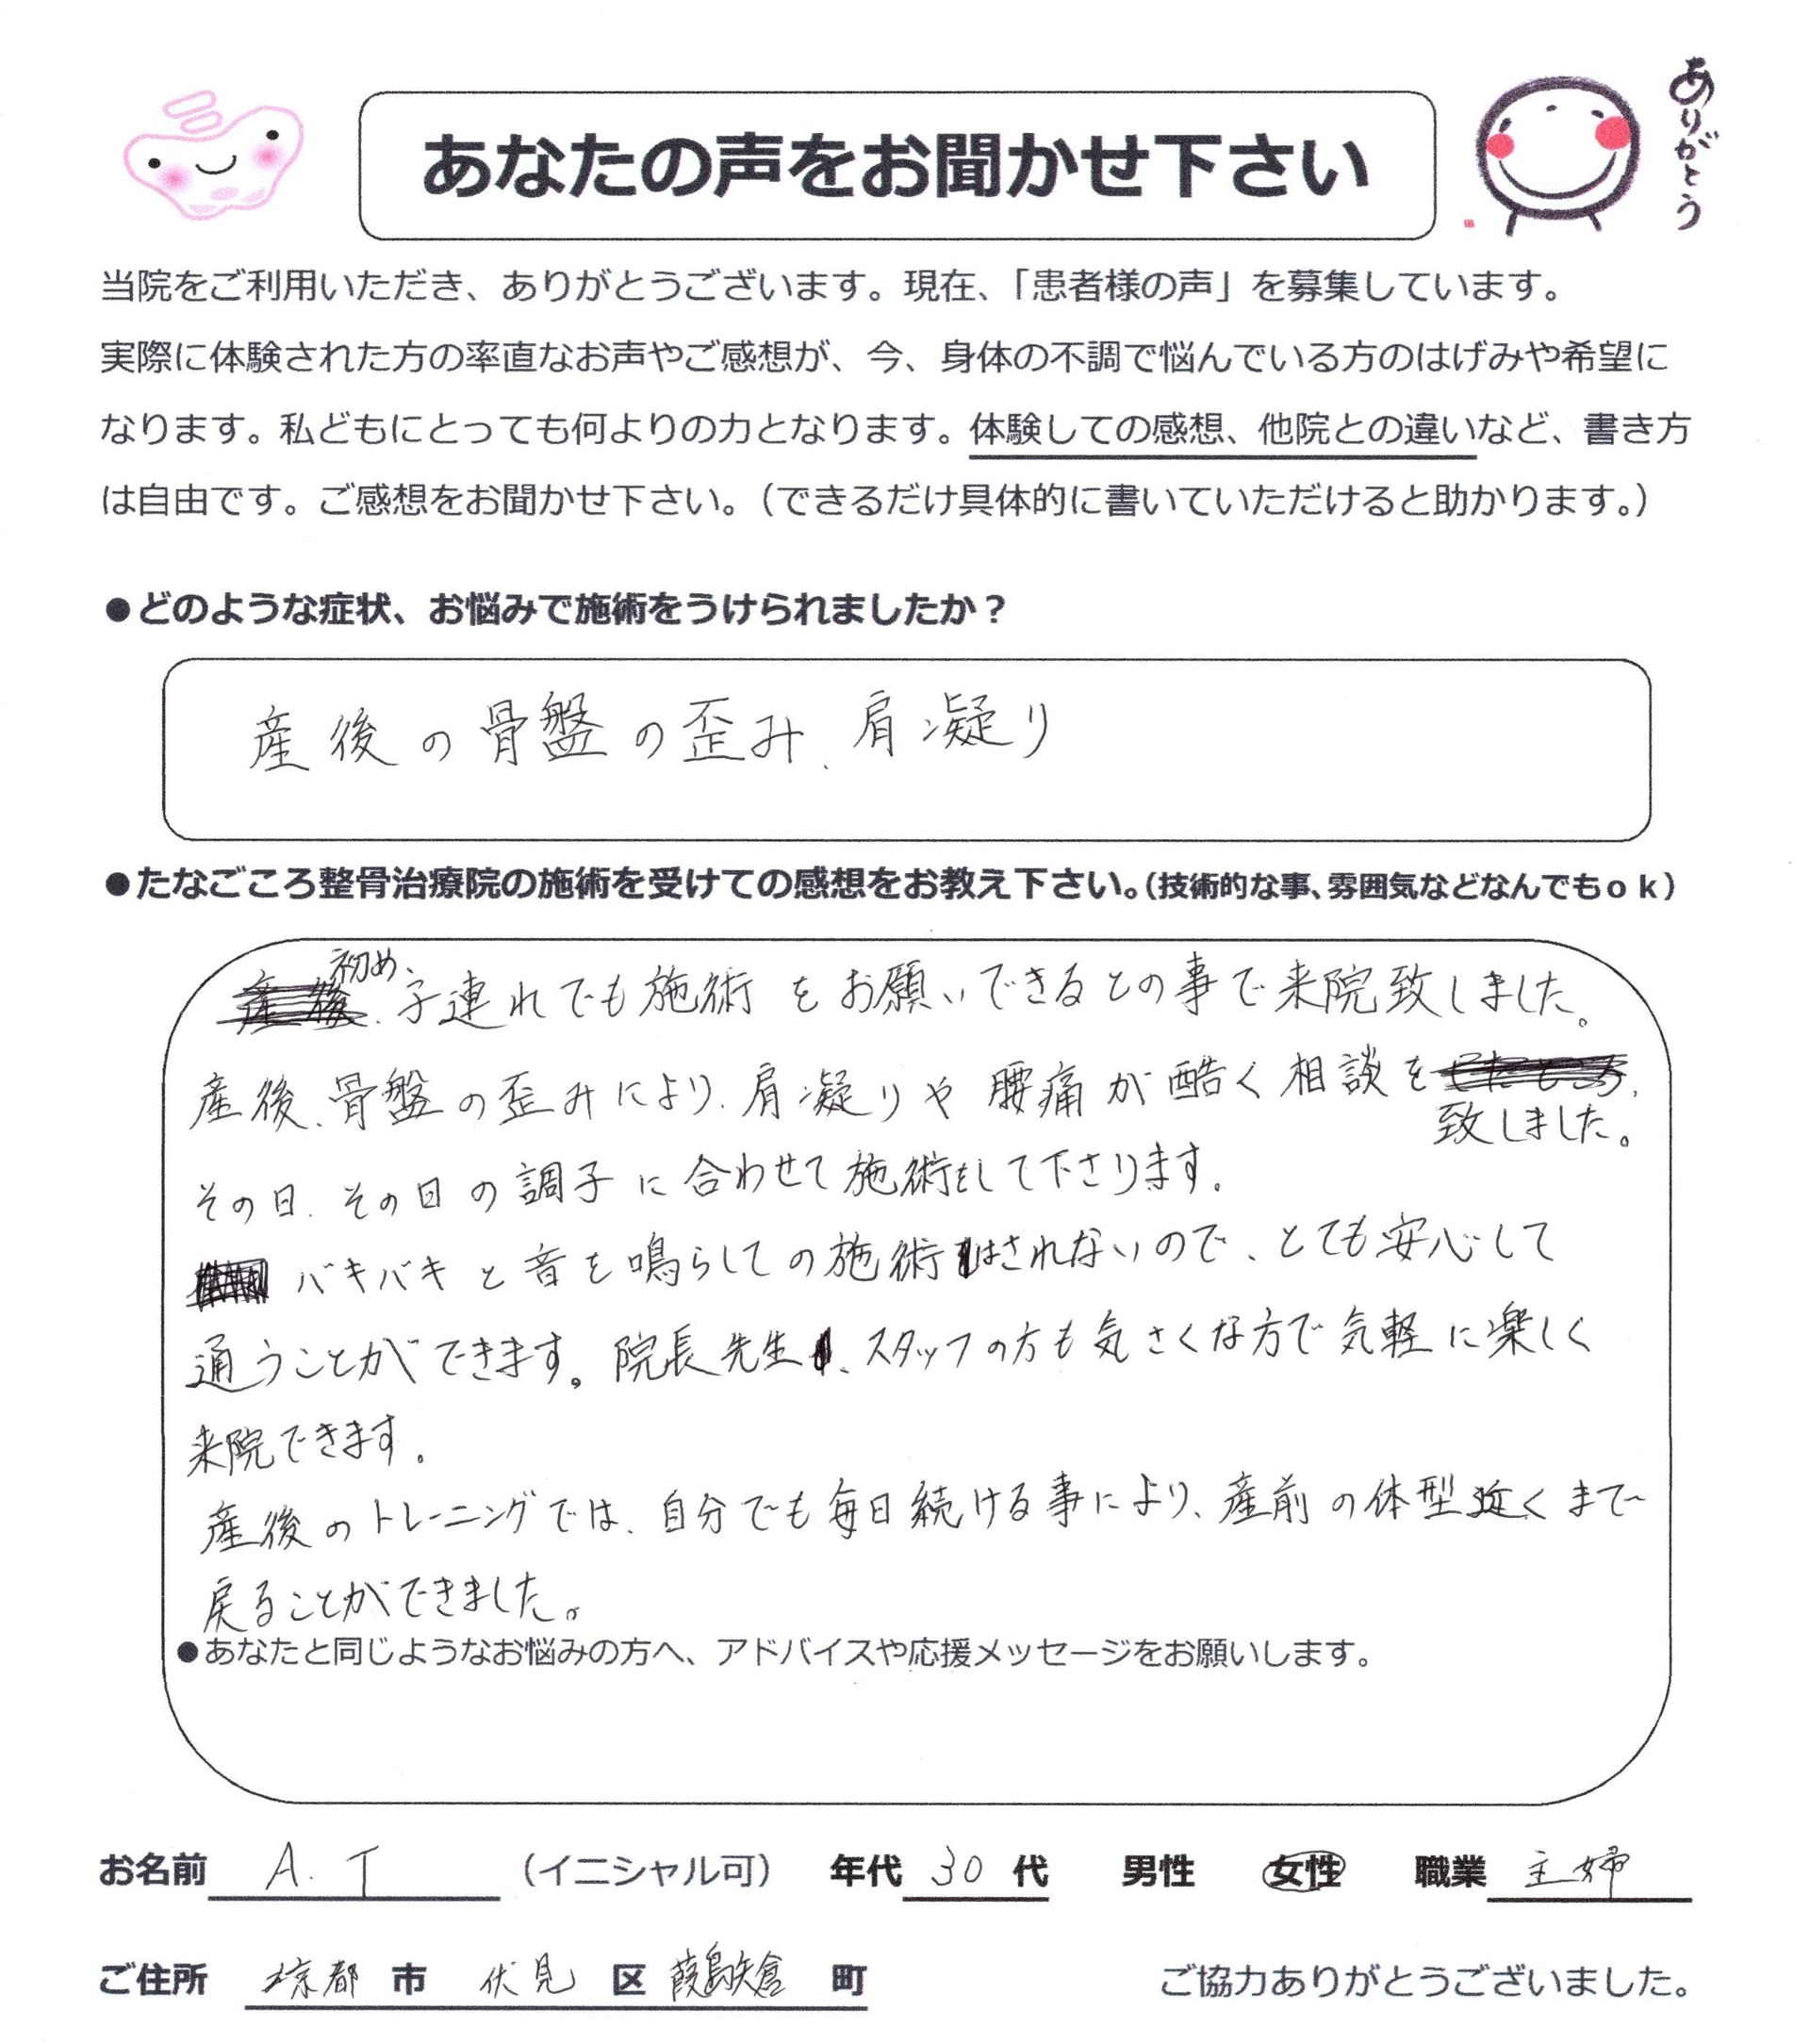 あなたの声をお聞かせ下さい
ありがとう
当院をご利用いただき、ありがとうございます。現在、「患者様の声」を募集しています。
実際に体験された方の率直なお声やご感想が、今、身体の不調で悩んでいる方のはげみや希望に
なります。私どもにとっても何よりの力となります。体験しての感想、他院との違いなど、書き方
は自由です。ご感想をお聞かせ下さい。（できるだけ具体的に書いていただけると助かります。）
●どのような症状、お悩みで施術をうけられましたか？
産後の骨盤の歪み、肩凝り
●たなごころ整骨治療院の施術を受けての感想をお教え下さい。（技術的な事、雰囲気などなんでもｏｋ）
初め、子連れでも施術をお願いできるとの事で来院致しました。
産後、骨盤の歪みにより、肩凝りや腰痛が酷く相談を
致しました。
その日、その日の調子に合わせて施術をして下さります。
バキバキと音を鳴らしての施術はされないので、とても安心して
通うことができます。院長先生、スタッフの方も気さくな方で気軽に楽しく
来院できます。
産後のトレーニングでは、自分でも毎日続ける事により、産前の体型近くまで
戻ることができました。
●あなたと同じようなお悩みの方へ、アドバイスや応援メッセージをお願いします。
お名前 A.T （イニシャル可） 年代 30 代 男性 女性 職業 主婦
ご住所 京都 市 伏見 区 葭島矢倉 町 ご協力ありがとうございました。